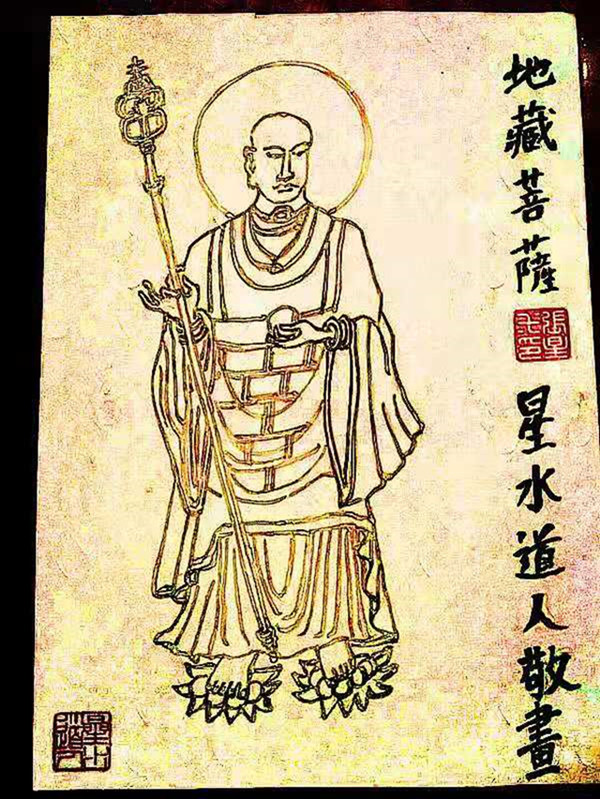 地藏菩薩
星水道人敬畫